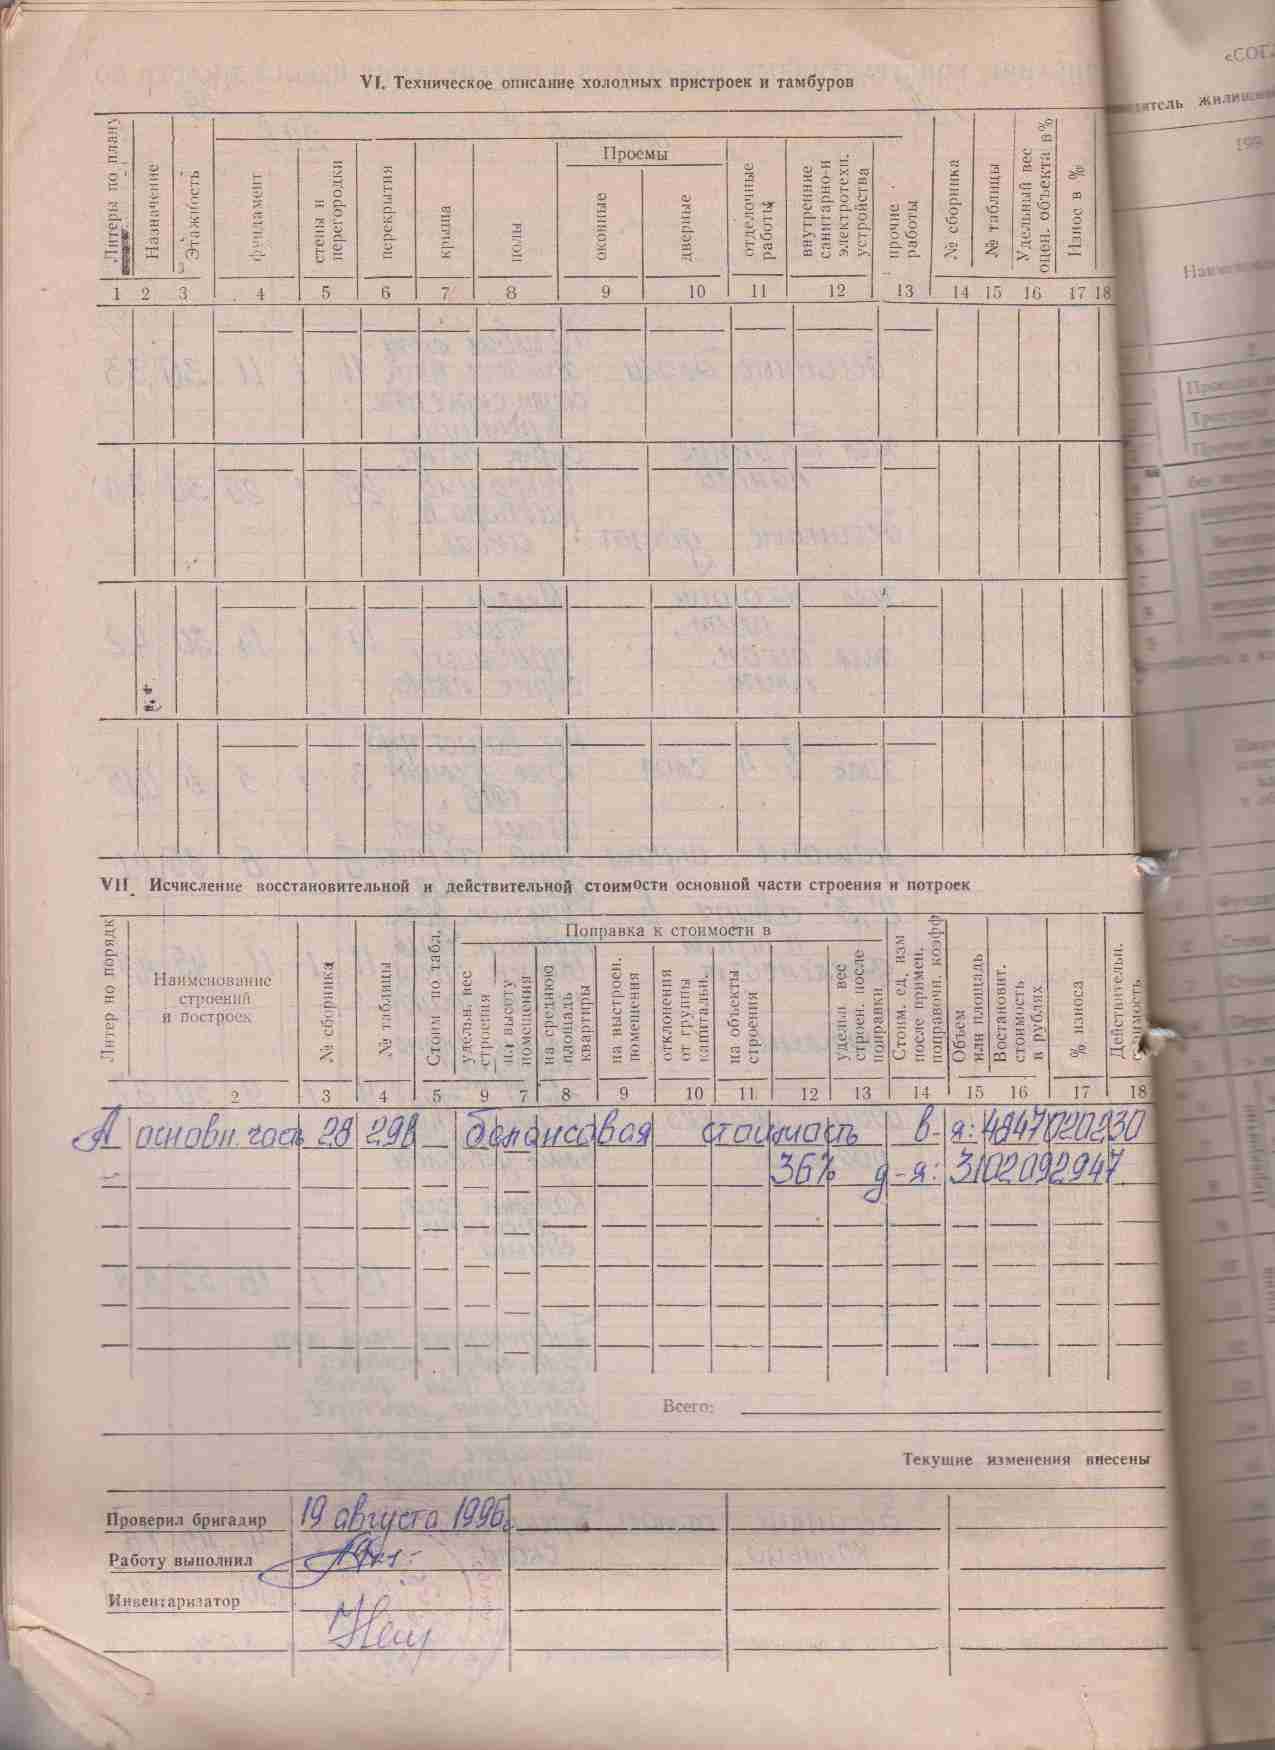 VI. Техническое описание холодных пристроек и тамбуров
Литеры по плану
Назначение
Этажность
фундамент
стены и
перегородки
перекрытия
крыша
полы
Проемы
оконные
дверные
отделочные
работы
внутренние
санитарно-и
электротехн.
устройства
прочие
работы
№ сборника
№ таблицы
Удельный вес
оцен. объекта в %
Износ в %
1 2 3 4 5 6 7 8 9 10 11 12 13 14 15 16 17 18
VII. Исчисление восстановительной и действительной стоимости основной части строения и потроек
Литер но порядк
Наименование
строений
и построек
№ сборника
№ таблицы
Стоим по табл.
Поправка к стоимости в
удельн. вес
строения
на высоту
помещения
на среднюю
площадь
квартиры
на выстроен.
помещения
отклонения
от группы
капитальн.
на объекты
строения
удельн вес
строен. после
поправки
Стоим. ед. изм
после примен.
поправочн. коэфф
Объем
или площадь
Востановит.
стоимость
в рублях
% износа
Действительн.
стоимость
2 3 4 5 9 7 8 9 10 11 12 13 14 15 16 17 18
А основн. часть 28 29В балансовая стоимость в-я: 4847020230
36% д-я: 3102092947
Всего:
Текущие изменения внесены
Проверил бригадир 19 августа 1996г.
Работу выполнил
Инвентаризатор
«СОГЛ
жилищно
199
Наименова